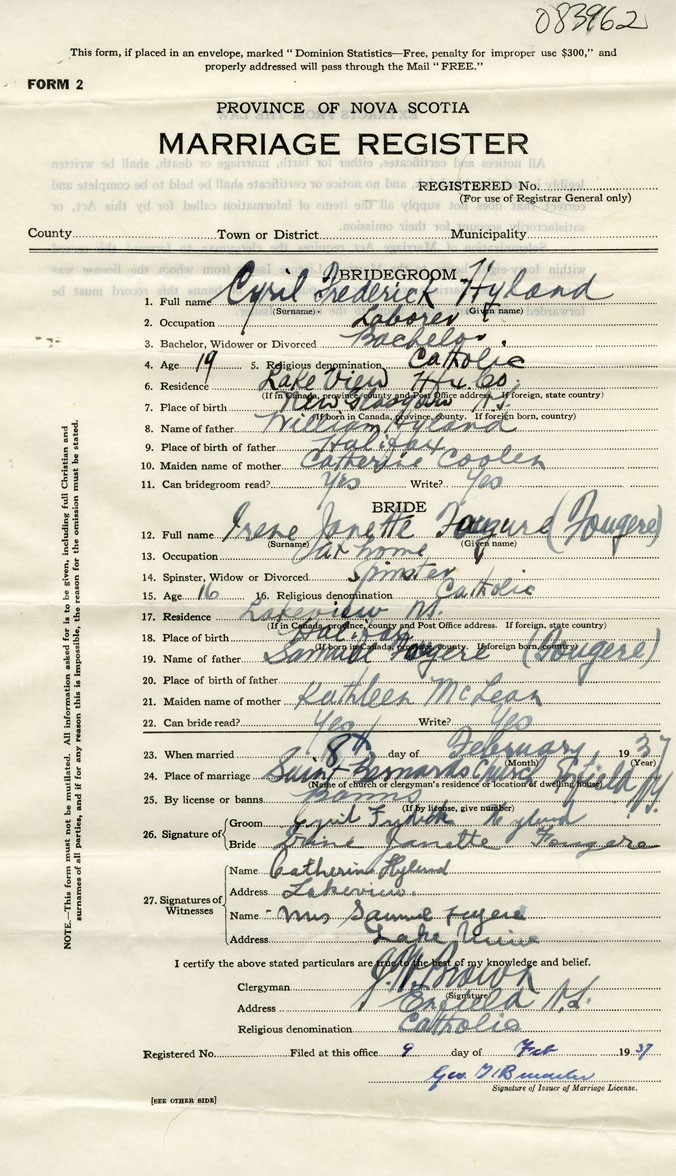 083962
This form, if placed in an envelope, marked "Dominion Statistics—Free, penalty for improper use $300," and
properly addressed will pass through the Mail "FREE."
FORM 2
PROVINCE OF NOVA SCOTIA
MARRIAGE REGISTER
REGISTERED No.
(For use of Registrar General only)
County Town or District Municipality
BRIDEGROOM
1. Full name Cyril Frederick Hyland
(Surname) (Given name)
2. Occupation Laborer
3. Bachelor, Widower or Divorced Bachelor
4. Age 19 5. Religious denomination Catholic
6. Residence Lake View Hfx Co.
(If in Canada, province, county and Post Office address. If foreign, state country)
7. Place of birth New Glasgow N.S.
(If born in Canada, province, county. If foreign born, country)
8. Name of father William Hyland
9. Place of birth of father Halifax
10. Maiden name of mother Catherine Coolen
11. Can bridegroom read? Yes Write? Yes
BRIDE
12. Full name Irene Janette Fougure (Fougere)
(Surname) (Given name)
13. Occupation at home
14. Spinster, Widow or Divorced Spinster
15. Age 16 16. Religious denomination Catholic
17. Residence Lakeview NS.
(If in Canada, province, county and Post Office address. If foreign, state country)
18. Place of birth Halifax
(If born in Canada, province, county. If foreign born, country)
19. Name of father Samuel (Fougere)
20. Place of birth of father
21. Maiden name of mother Kathleen McLean
22. Can bride read? Yes Write? Yes
23. When married 8th day of February 1937
(Month) (Year)
24. Place of marriage Saint Bernards Enfield
(Name of church or clergyman's residence or location of dwelling house)
25. By license or banns Banns
(If by license, give number)
26. Signature of Groom Cyril Hyland
Bride Irene Janette Fougere
27. Signatures of Witnesses Name Catherine Hyland
Address Lakeview.
Name Mrs Samuel
Address Lake View
I certify the above stated particulars are true to the best of my knowledge and belief.
Clergyman Brown
(Signature)
Address Enfield N.S.
Religious denomination Catholic
Registered No. Filed at this office 9 day of Feb 1937
Geo.
Signature of Issuer of Marriage License.
[SEE OTHER SIDE]
NOTE.—This form must not be mutilated. All information asked for is to be given, including full Christian and
surnames of all parties, and if for any reason this is impossible, the reason for the omission must be stated.